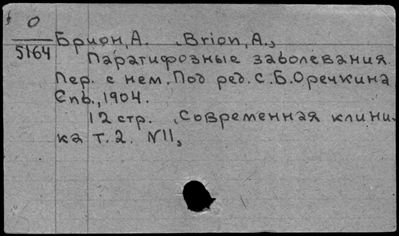 0
5164
Брион, А. ,Brion, A.,
Паратифозные заболевания.
Пер. с нем. Под ред. С.Б. Оречкина
Спб., 1904.
12 стр. ,Современная клини-
ка т. 2. №11,